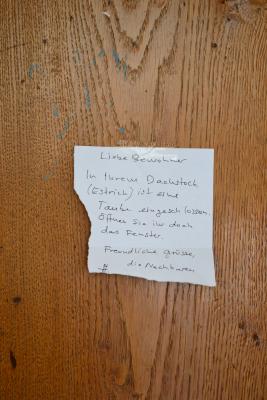 Liebe Bewohner
In Ihrem Dachstock
(Estrich) ist eine
Taube eingeschlossen.
Öffnen Sie ihr doch
das Fenster.
Freundliche grüsse,
die Nachbaren